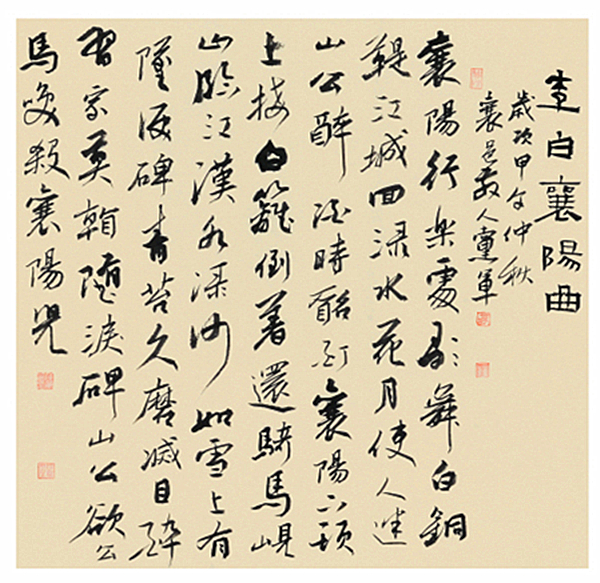 李白襄陽曲
歲次甲午仲秋
襄邑散人黨軍
襄陽行楽處歌舞白銅
鞮江城回渌水花月使人迷
山公醉酒時酩酊襄陽下頭
上接白籬倒著還騎馬峴
山臨江漢水渌沙如雪上有
墮淚碑青苔久磨滅且醉
習家莫看墮淚碑山公欲上
馬笑殺襄陽兒